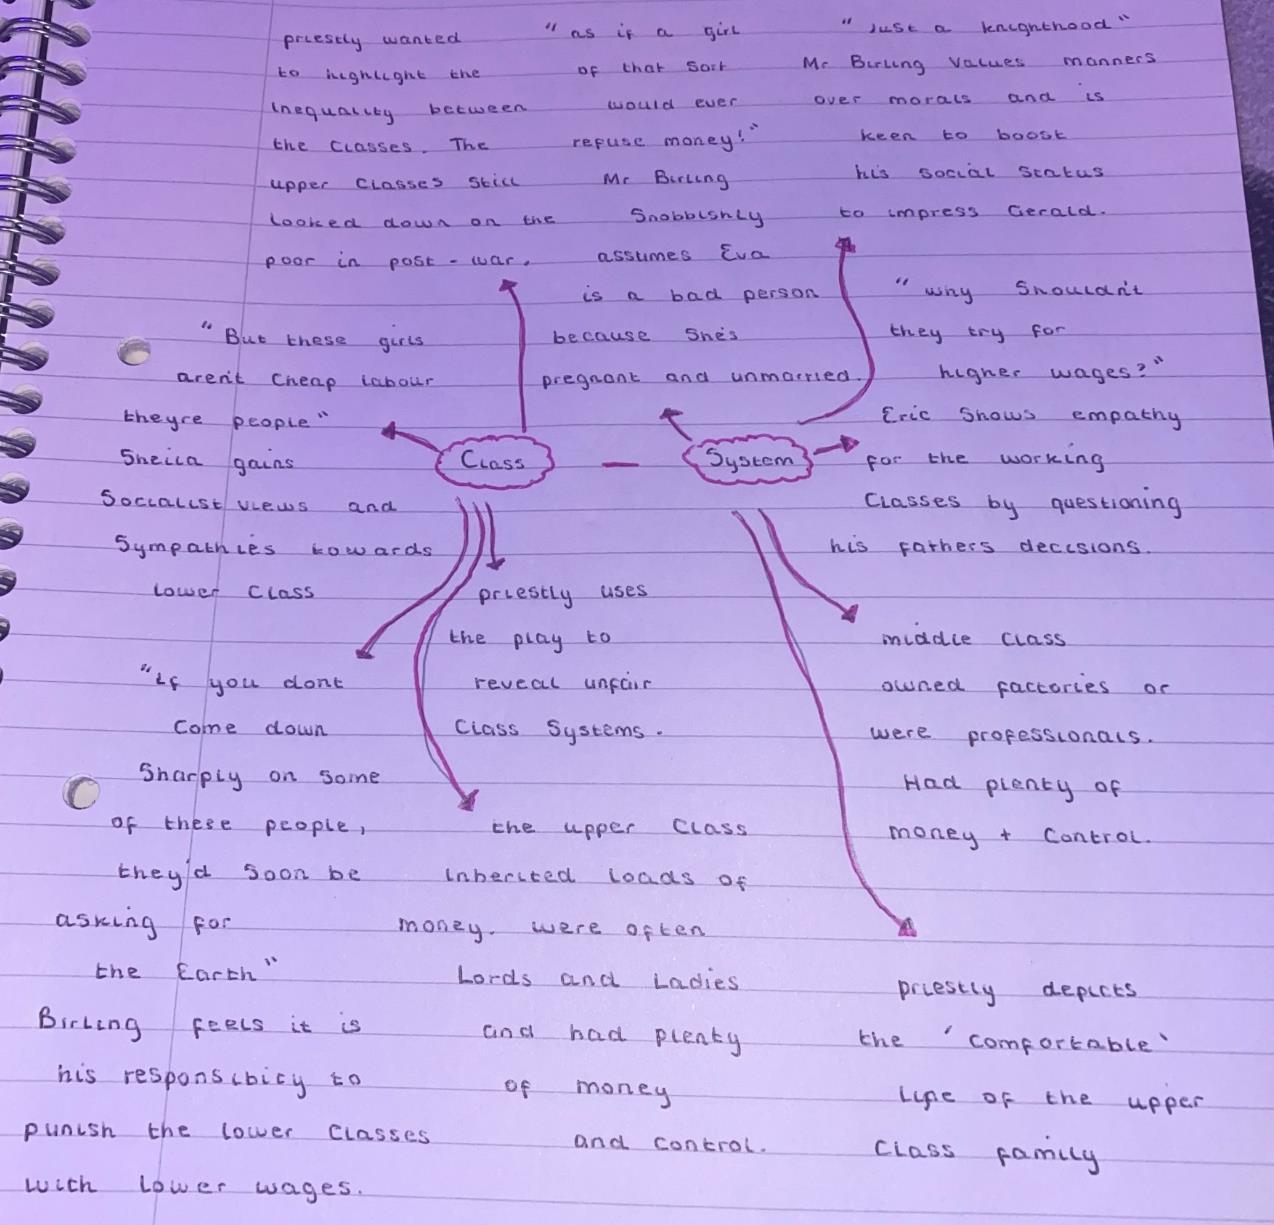 priestly wanted
to highlight the
inequality between
the classes. The
upper classes still
looked down on the
poor in post-war.
"as if a girl
of that sort
would ever
refuse money!"
Mr Birling
Snobbishly
assumes Eva
is a bad person
because she's
pregnant and unmarried.
"Just a knighthood"
Mr Birling values manners
over morals and is
keen to boost
his social status
to impress Gerald.
"But these girls
aren't cheap labour
theyre people"
Sheila gains
Socialist views and
Sympathies towards
lower class
Class - System
"why shouldn't
they try for
higher wages?"
Eric shows empathy
for the working
classes by questioning
his fathers decisions.
"if you dont
come down
sharply on some
of these people,
they'd soon be
asking for
the Earth"
Birling feels it is
his responsibity to
punish the lower classes
with lower wages.
priestly uses
the play to
reveal unfair
class systems.
the upper class
inherited loads of
money. were often
Lords and Ladies
and had plenty
of money
and control.
middle class
owned factories or
were professionals.
Had plenty of
money + control.
priestly depicts
the 'comfortable'
life of the upper
class family